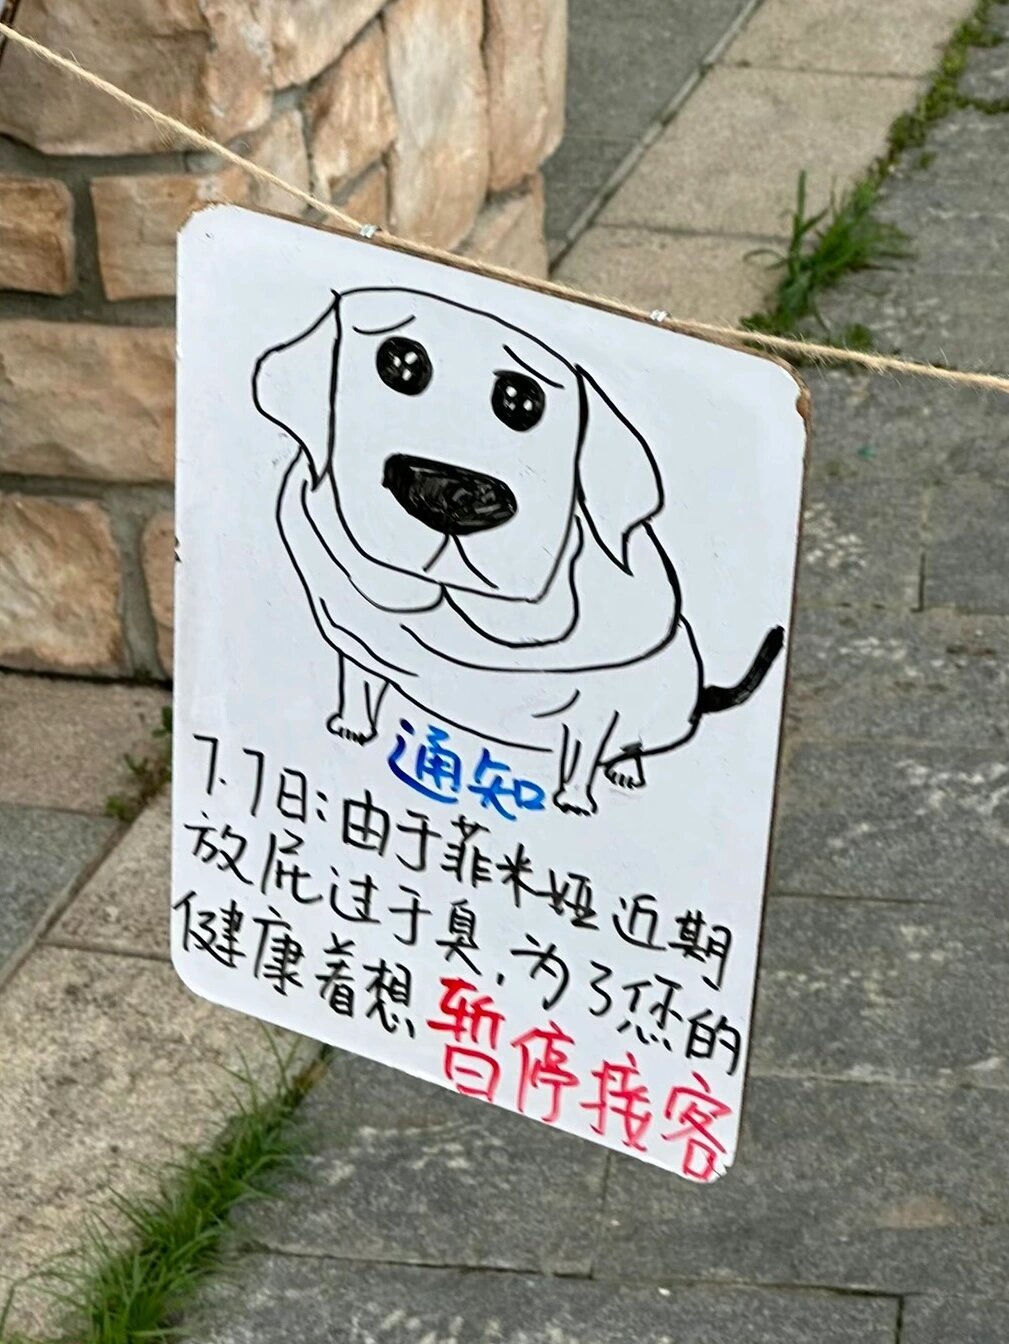 通知
7.7日:由于菲米娅近期
放屁过于臭,为了您的
健康着想 暂停接客